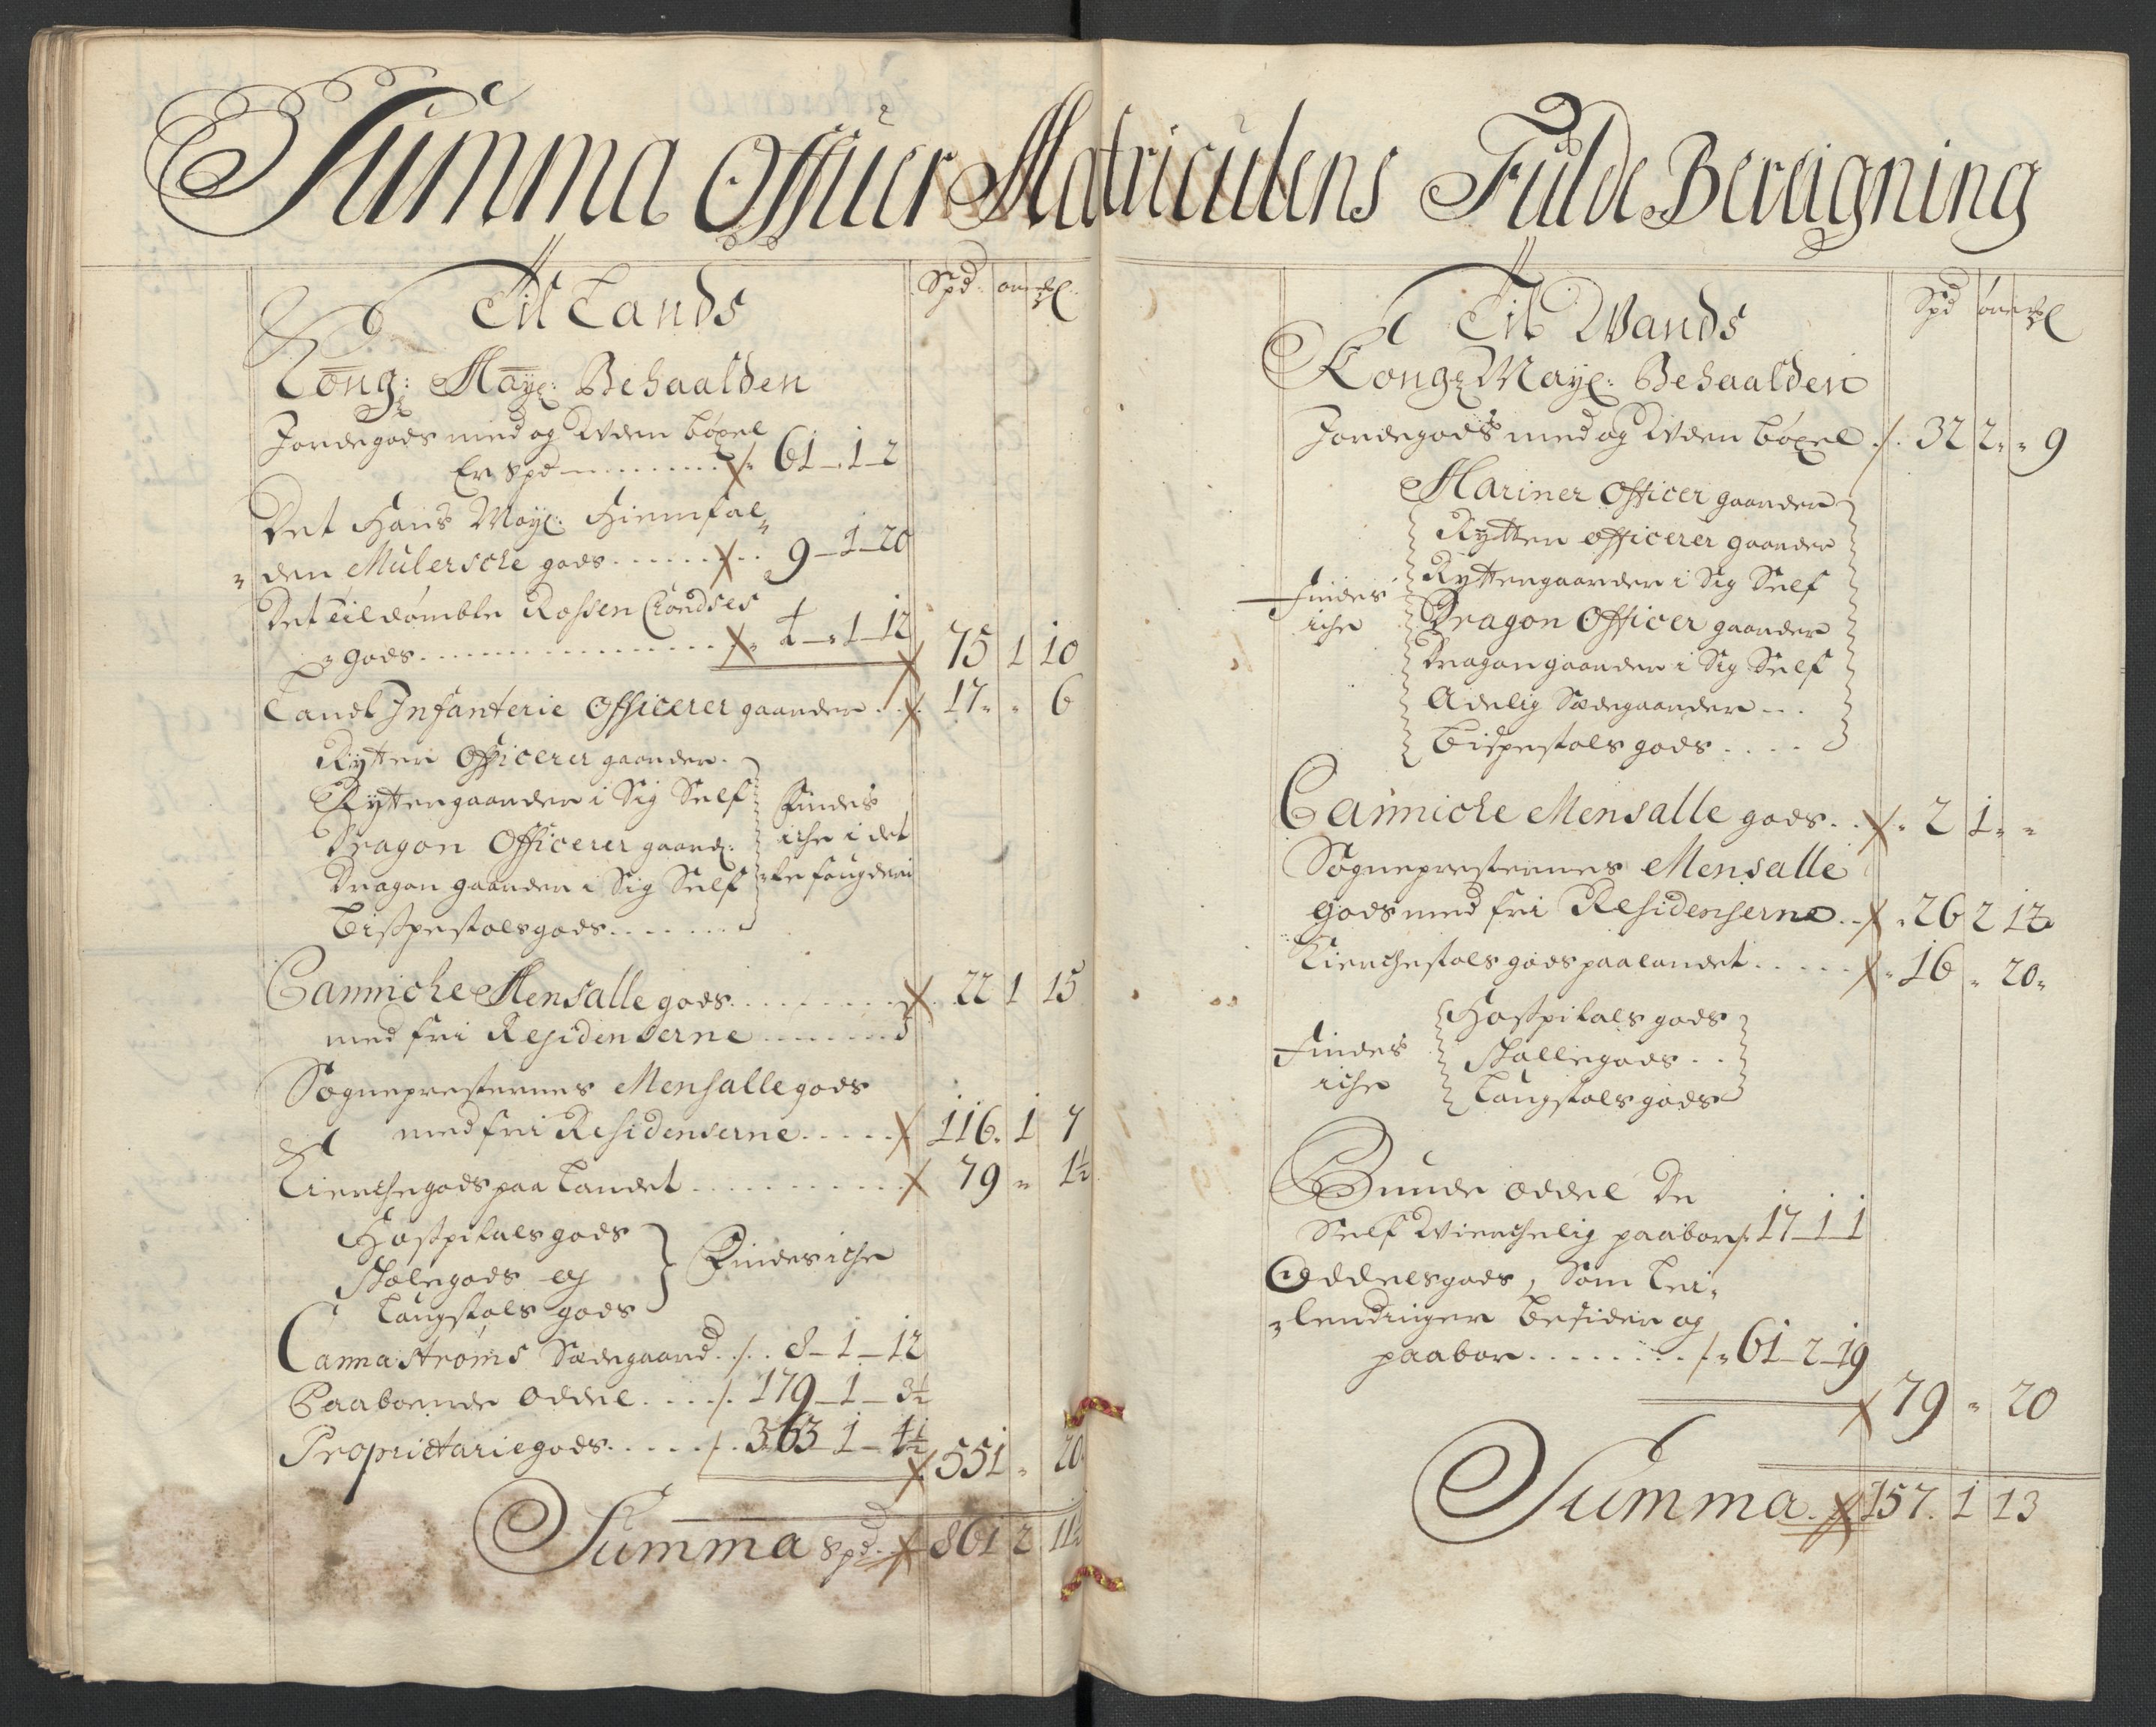 Summa Offuer Matriculens Fulde Bereigning
Til Lands
Spd ørr mkl
Kong: Mayt: Behaalden
Jordegods med og Udenböxel
Er Spd ........ 61 - 1 - 2
Det Hans Mayt: Hiemfal„
„den Mulersche gods ...... 9 - 1 - 20
Det Tildömbte Rossen Crondses
gods ................ 4 - 1 - 12 75 1 10
Landt Infanterie Officerer gaarder . 17 „ „ 6
Rytter Officerer gaarder.
Ryttergaarder i Sig Self
Dragon Officerer gaard:
Dragon gaarder i Sig Self
Bispestolsgods.......
Findes
iche i det
„te fougderi
Canniche Mensalle gods ......... 22 1 15
med fri Residenserne ........
Sognepresternes Mensalle gods
med fri Residenserne ..... 116. 1 7
Kierchegods paa Landet .......... 79 „ 1½
Hospitalsgods
Skolegods og
Laugstols gods
Findes iche
Cannastroms Sædegaard ./. 8 - 1 - 12
Paaboende oddel ..../. 179 - 1 - 3½
Proprietariegods ...../. 363 - 1 - 4½
551 „ 20
Summa Spd. 861 2 11½
Til Wands
Spd ørr mkl
Kong: Mayt: Behaalden
Jordegods med og Uden böxel ./. 32 2 „ 9
Mariner Officer gaarder
Rytter officerer gaarder
Ryttergaarder i Sig Self
Dragon Officer gaarder
Dragongaarder i Sig Self
Adelig Sædegaarder...
Bispestols gods ....
Findes
iche
Canniche Mensalle gods .. 2 1 „ „
Sognepresternes Mensalle
gods med fri Residenserne .. 26 2 12
Kierchestols gods paa landet ..... 16 „ 20
Hospitals gods
Skollegods ..
Laugstols gods
Findes
iche
Bunde oddel De
Self Wierchelig paaboer /. 17 - 1 - 1
Oddelsgods, Som Lei„
„lendinger besider og
paaboer ......../. 61 - 2 - 19
79 „ 20
Summa. 157. 1 13